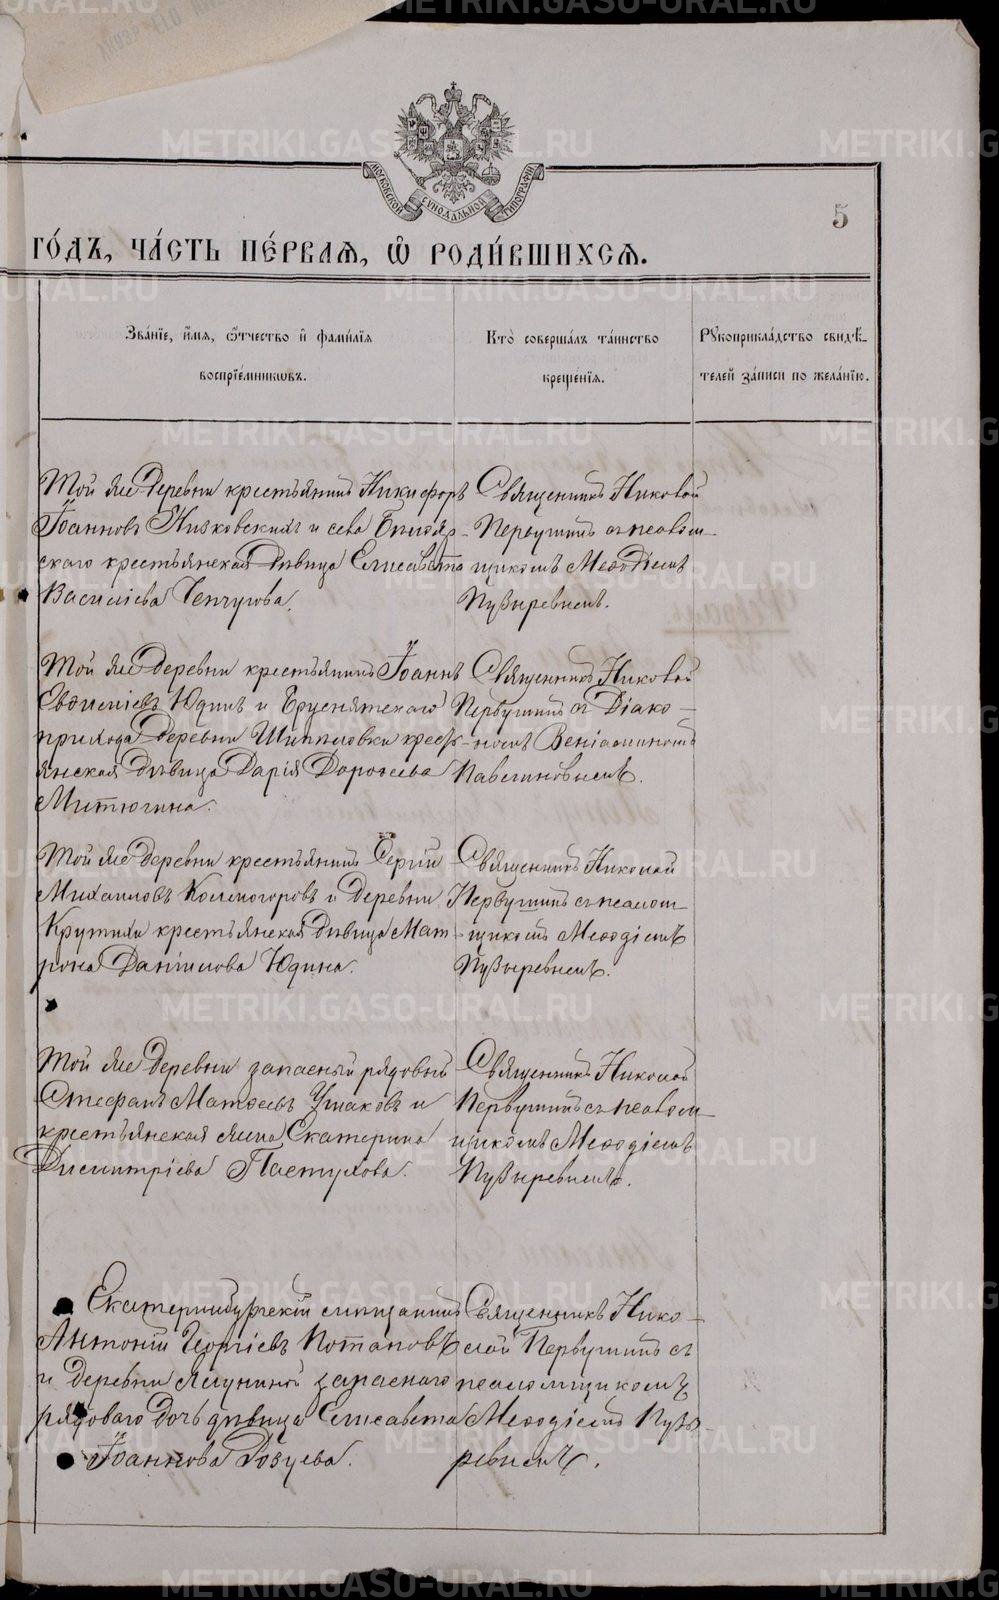 МОСКОВСКОЙ СѴНОДАЛЬНОЙ ТИПОГРАФІИ
5
ГО́ДЪ, ЧА́СТЬ ПЕ́РВАЯ, Ѽ РОДИ́ВШИХСЯ.
Зва́нїе, и҆́мя, ѻ҆́тчество и҆ фами́лїя
воспрїе́мникѡвъ.
Кто̀ соверша́лъ та́инство
креще́нїя.
Рꙋкоприкла́дство свидѣ́-
телей за́писи по жела́нїю.
Той же деревни крестьянинъ Никифоръ
Іоанновъ Низковскихъ и села
скаго крестьянская дѣвица Елисавета
Василіева Чепчугова.
Священникъ Николай
Первушинъ съ псалом-
щикомъ Меѳодіемъ
Пузыревымъ.
Той же деревни крестьянинъ Іоаннъ
Евѳиміевъ Юдинъ и Бруснятскаго
прихода деревни Шипиловки кресть-
янская дѣвица Дарія Дороѳеева
Митюгина.
Священникъ Николай
Первушинъ съ Діако-
номъ Веніаминомъ
Павлиновымъ.
Той же деревни крестьянинъ Сергій
Михаиловъ Колмогоровъ и деревни
Крутихи крестьянская дѣвица Мат-
рона Даніилова Юдина.
Священникъ Николай
Первушинъ съ псалом-
щикомъ Меѳодіемъ
Пузыревымъ.
Той же деревни запасный рядовый
Стефанъ Матѳеевъ Ушаковъ и
крестьянская жена Екатерина
Димитріева Пастухова.
Священникъ Николай
Первушинъ съ псалом-
щикомъ Меѳодіемъ
Пузыревымъ.
Екатеринбургскій мѣщанинъ
Антоній Георгіевъ Потаповъ
и деревни Ялуниной запаснаго
рядоваго дочь дѣвица Елисавета
Іоаннова
Священникъ Нико-
лай Первушинъ съ
псаломщикомъ
Меѳодіемъ Пузы-
ревымъ.
METRIKI.GASO-URAL.RU